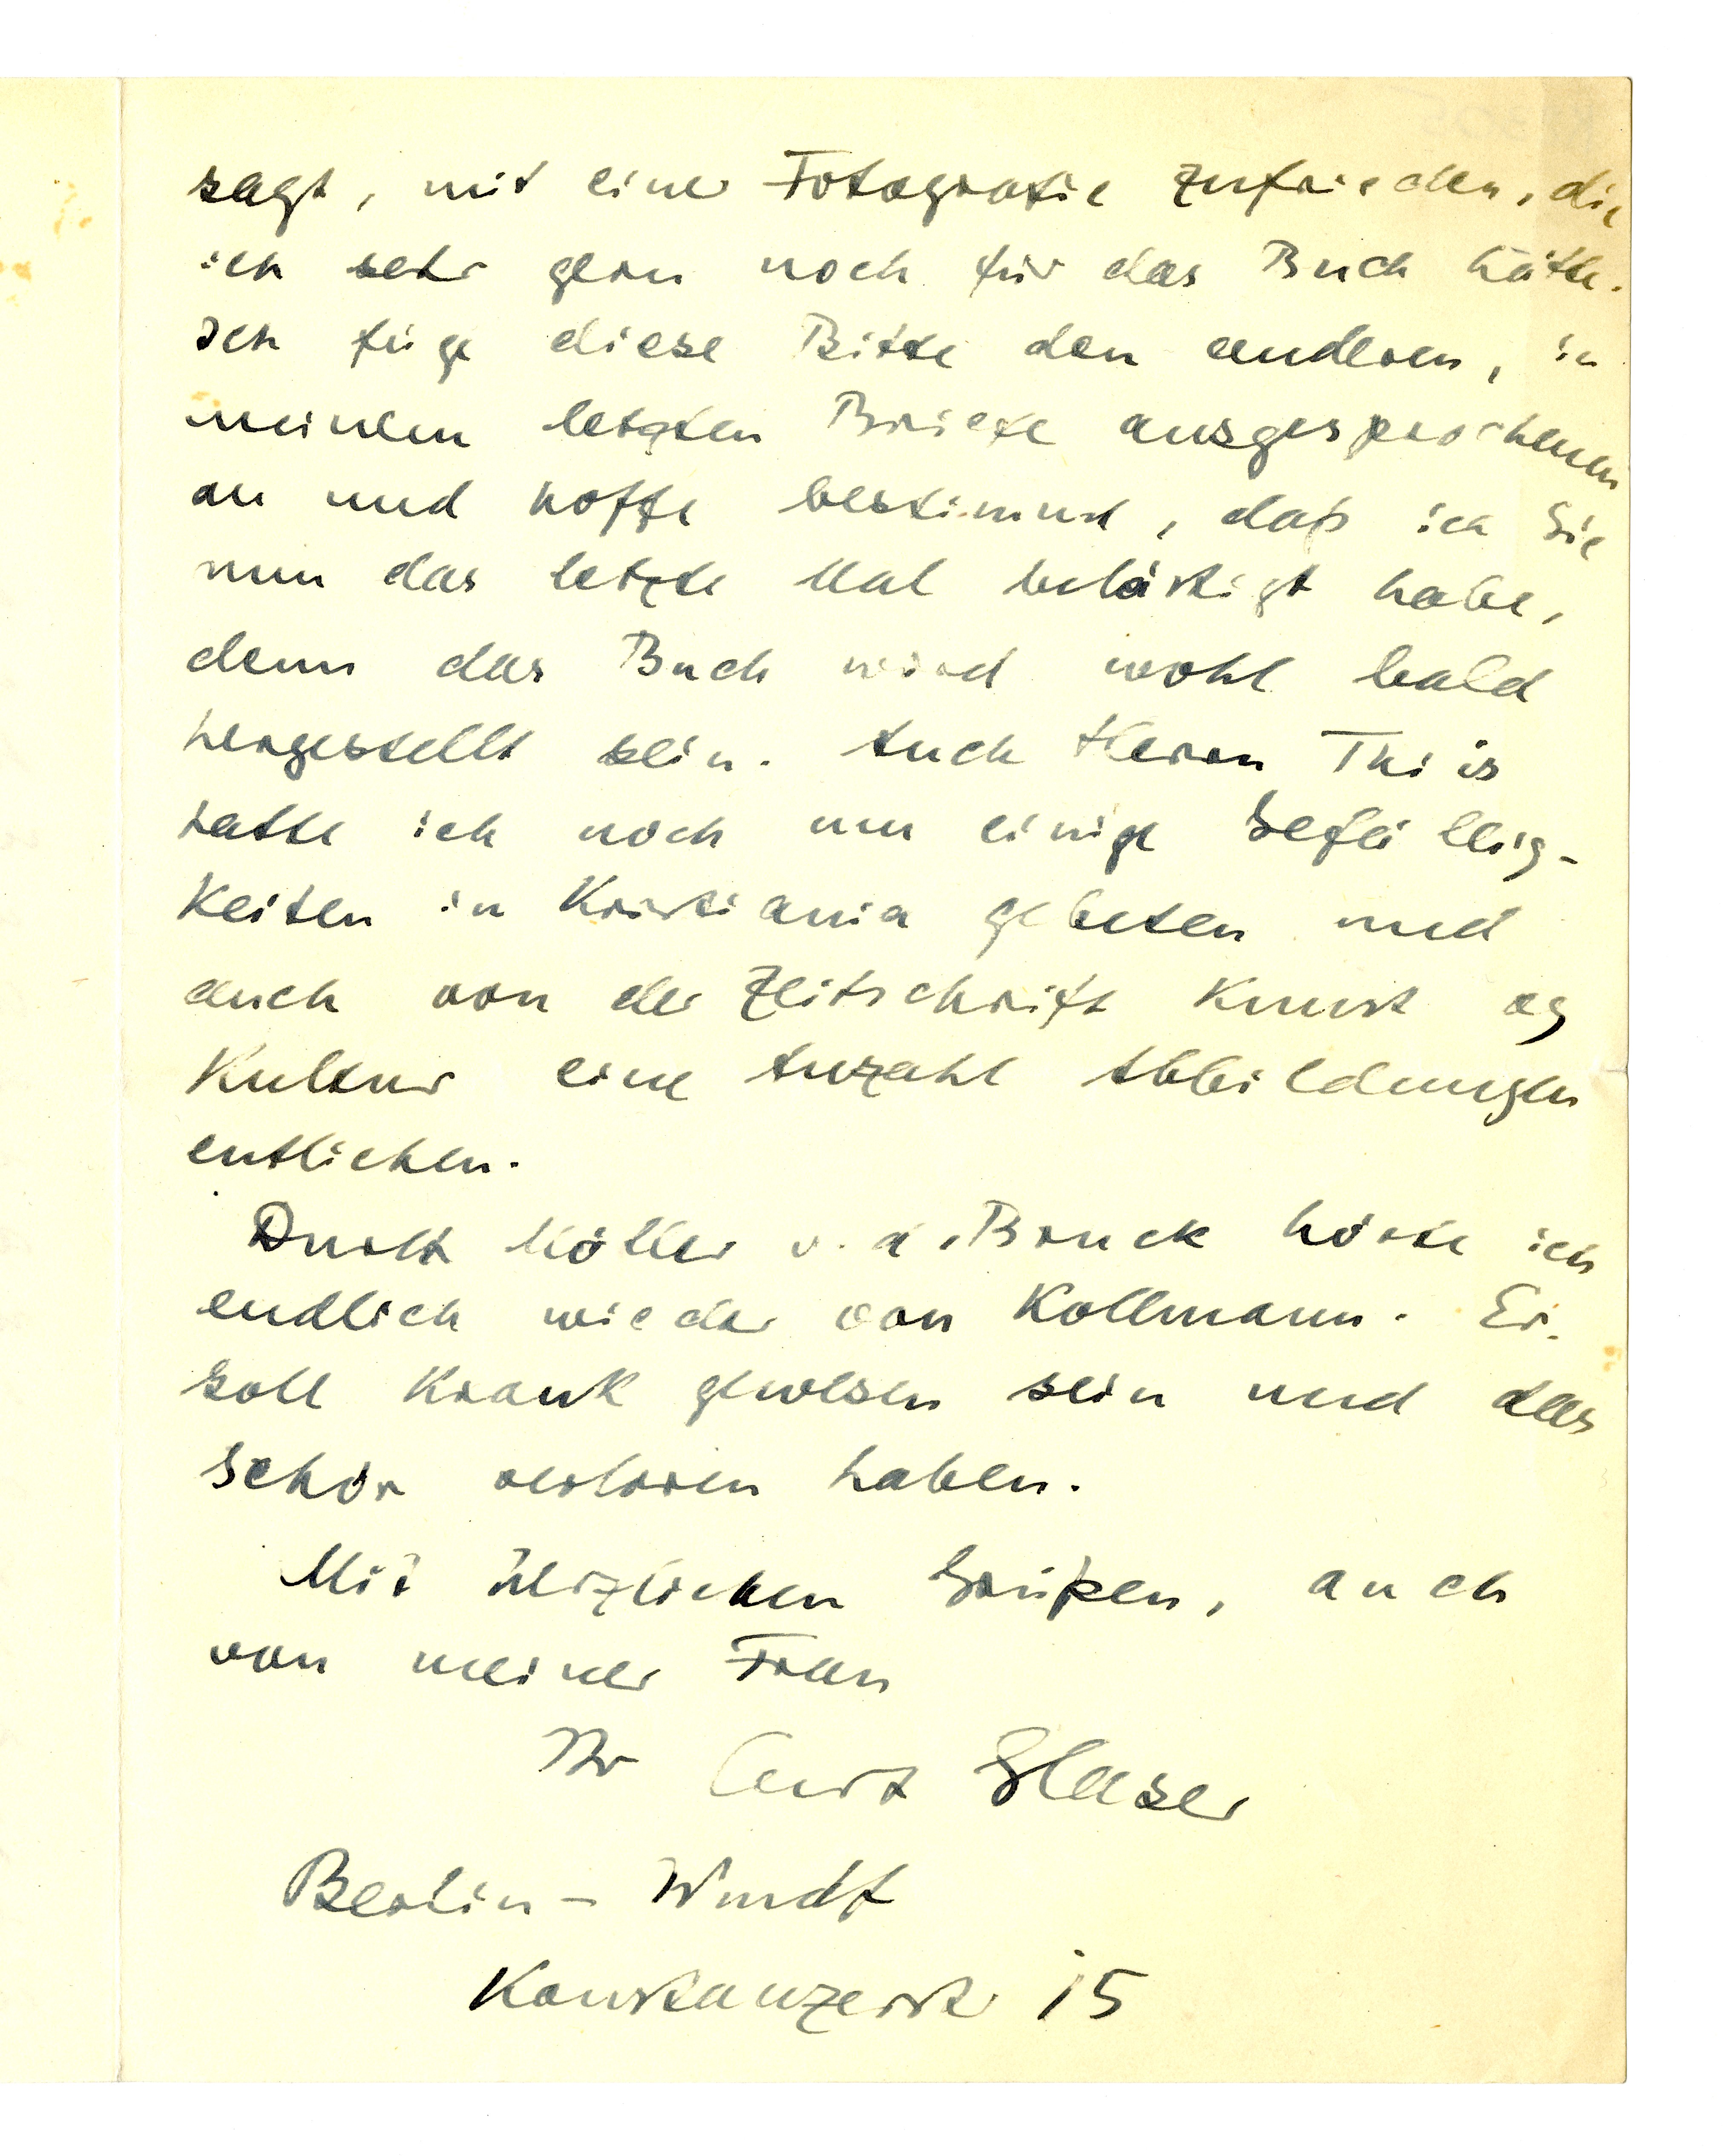 sagt, mit einer Fotografie zufrieden, die
ich sehr gern noch für das Buch hätte.
Ich füge diese Bitte den anderen, in
meinem letzten Briefe ausgesprochenen
an und hoffe bestimmt, daß ich Sie
nun das letzte Mal belästigt habe,
denn das Buch wird wohl bald
hergestellt sein. Auch Herrn Thiis
hatte ich noch um einige Gefällig-
keiten in Kristiania gebeten und
auch von der Zeitschrift Kunst og
Kultur eine Anzahl Abbildungen
entliehen.
Durch Möller v. d. Bruck hörte ich
endlich wieder von Kollmann. Er
soll krank gewesen sein und das
Gehör verloren haben.
Mit herzlichen Grüßen, auch
von meiner Frau
Ihr Curt Glaser
Berlin - Wmdf
Konstanzerstr 15